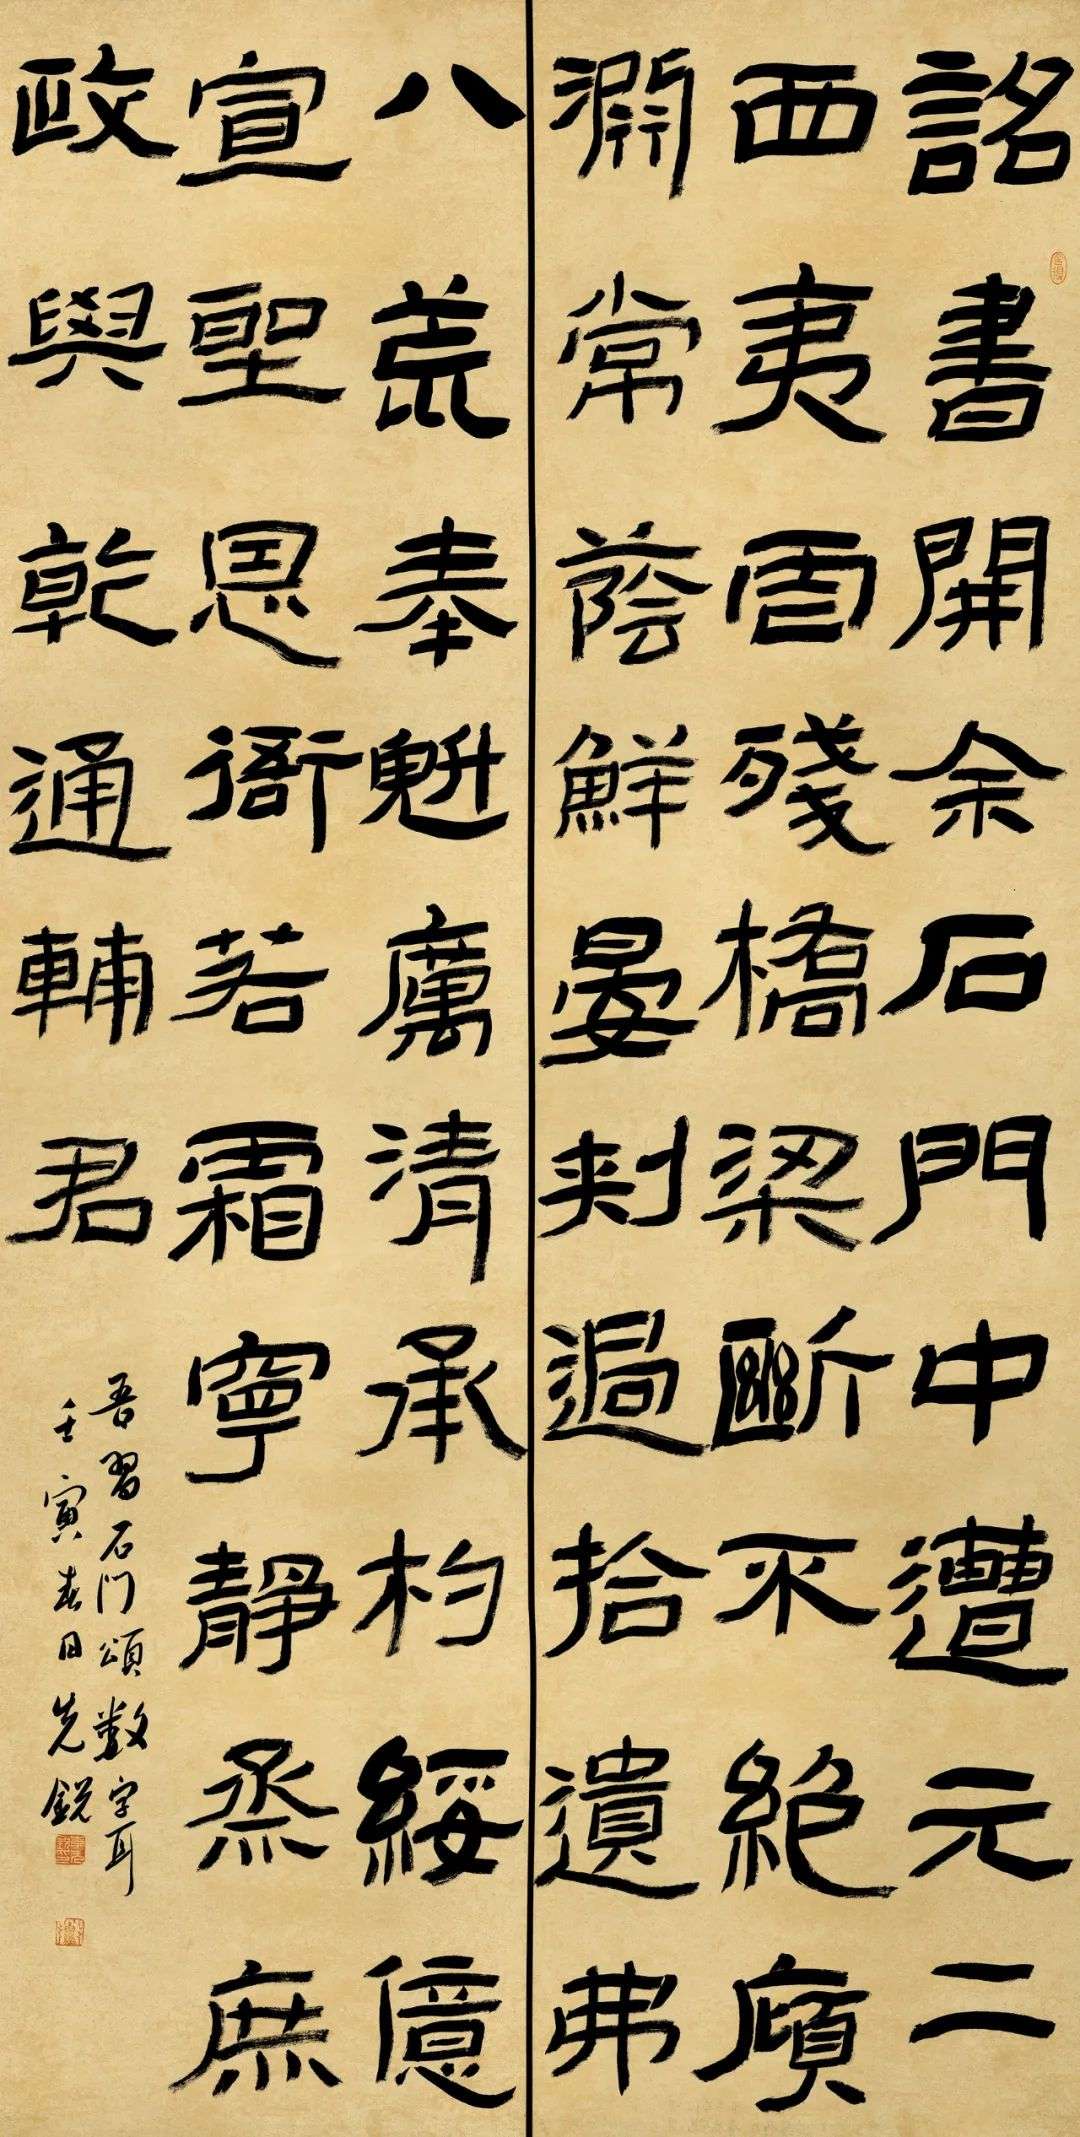 詔書開余石門中遭元二
西夷虐殘橋梁斷不絕廎
淵常蔭鮮晏刺過拾遺弗
八荒奉魁厲清承杓綏億
宣聖恩衙若霜寧靜烝庶
政與乾通輔君
吾習石門頌數字耳
壬寅春日先銳